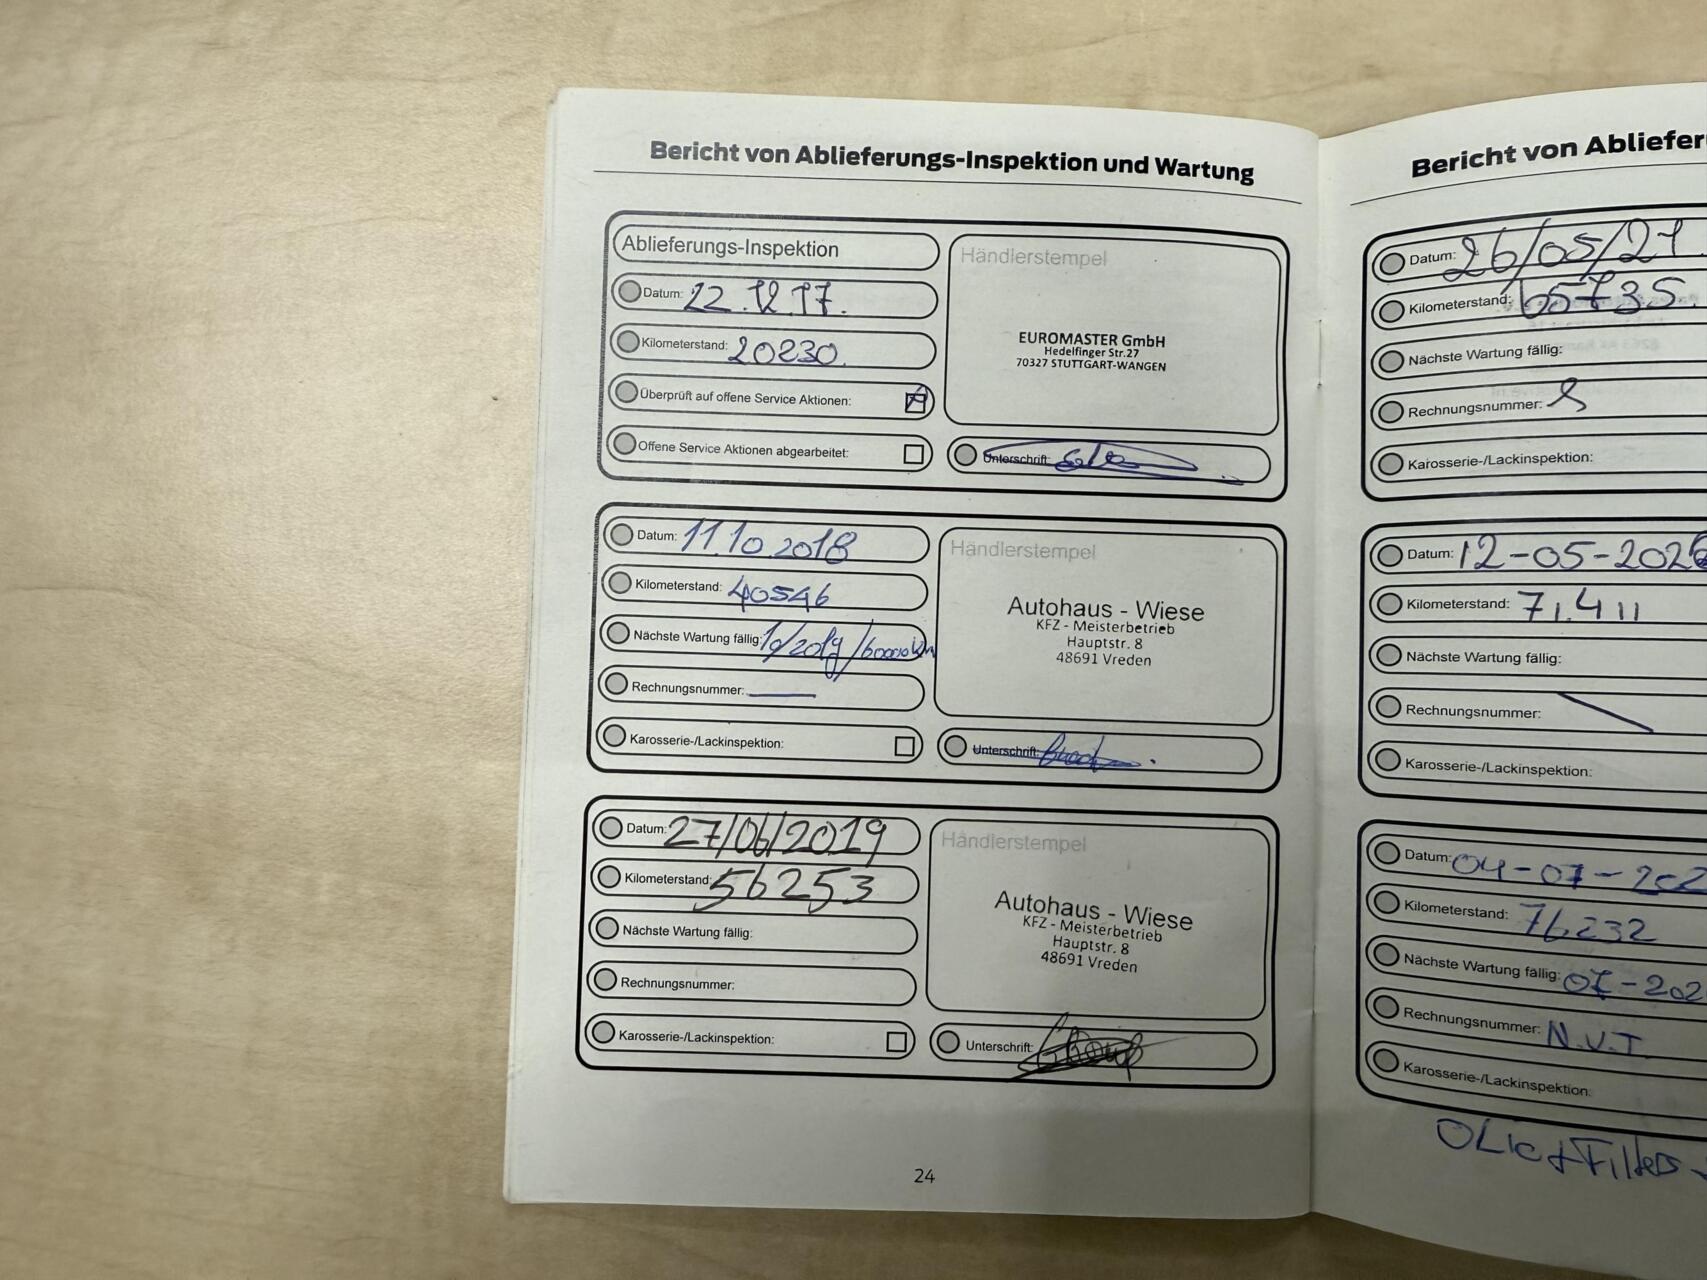 Bericht von Ablieferungs-Inspektion und Wartung
Ablieferungs-Inspektion
Datum: 22.12.17.
Kilometerstand: 20230.
Überprüft auf offene Service Aktionen:
Offene Service Aktionen abgearbeitet:
Händlerstempel
EUROMASTER GmbH
Hedelfinger Str.27
70327 STUTTGART-WANGEN
Unterschrift:
Datum: 11.10.2018
Kilometerstand: 40546
Nächste Wartung fällig: 10/2019/60000 km
Rechnungsnummer:
Karosserie-/Lackinspektion:
Händlerstempel
Autohaus - Wiese
KFZ - Meisterbetrieb
Hauptstr. 8
48691 Vreden
Unterschrift:
Datum: 27/06/2019
Kilometerstand: 56253
Nächste Wartung fällig:
Rechnungsnummer:
Karosserie-/Lackinspektion:
Händlerstempel
Autohaus - Wiese
KFZ - Meisterbetrieb
Hauptstr. 8
48691 Vreden
Unterschrift:
24
Bericht von Ablief
Datum: 26/05/21.
Kilometerstand: 65735.
Nächste Wartung fällig:
Rechnungsnummer:
Karosserie-/Lackinspektion:
Datum: 12-05-202
Kilometerstand: 71.411
Nächste Wartung fällig:
Rechnungsnummer:
Karosserie-/Lackinspektion:
Datum: 04-07-202
Kilometerstand: 76232
Nächste Wartung fällig: 07-202
Rechnungsnummer: N.V.T.
Karosserie-/Lackinspektion:
OLie + Filters